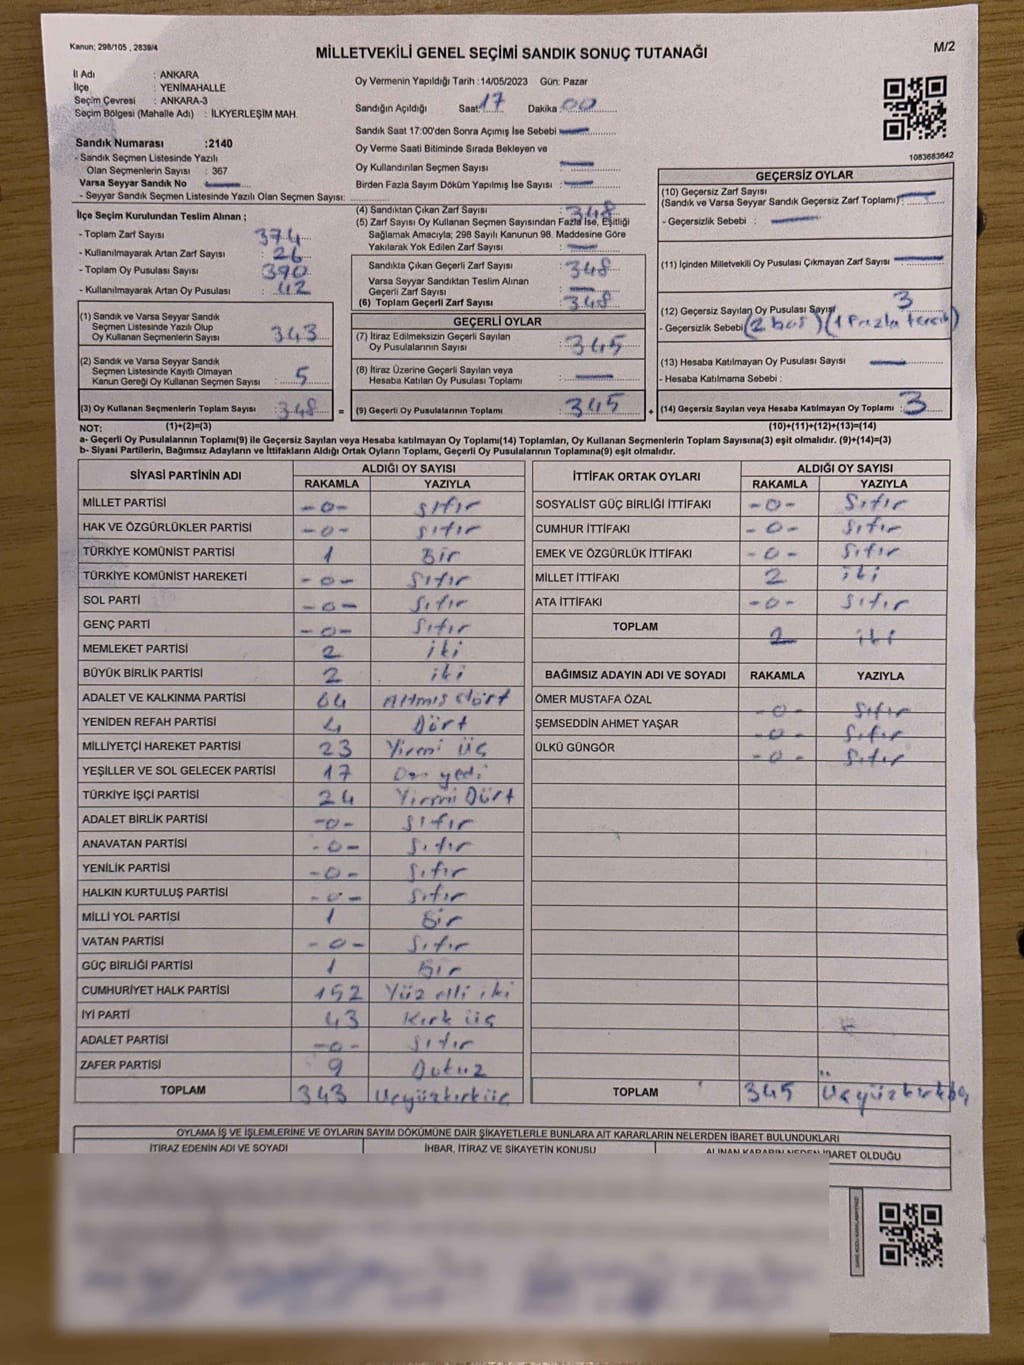 Kanun; 298/105 , 2839/4
MİLLETVEKİLİ GENEL SEÇİMİ SANDIK SONUÇ TUTANAĞI
M/2
İl Adı : ANKARA
İlçe : YENİMAHALLE
Seçim Çevresi : ANKARA-3
Seçim Bölgesi (Mahalle Adı) : İLKYERLEŞİM MAH.
Sandık Numarası :2140
- Sandık Seçmen Listesinde Yazılı
Olan Seçmenlerin Sayısı : 367
Varsa Seyyar Sandık No
- Seyyar Sandık Seçmen Listesinde Yazılı Olan Seçmen Sayısı:
Oy Vermenin Yapıldığı Tarih :14/05/2023 Gün: Pazar
Sandığın Açıldığı Saat 17 Dakika 00
Sandık Saat 17:00'den Sonra Açımış İse Sebebi
Oy Verme Saati Bitiminde Sırada Bekleyen ve
Oy Kullandırılan Seçmen Sayısı :
Birden Fazla Sayım Döküm Yapılmış İse Sayısı :
1083683642
İlçe Seçim Kurulundan Teslim Alınan ;
- Toplam Zarf Sayısı : 374
- Kullanılmayarak Artan Zarf Sayısı : 26
- Toplam Oy Pusulası Sayısı : 390
- Kullanılmayarak Artan Oy Pusulası : 42
(1) Sandık ve Varsa Seyyar Sandık
Seçmen Listesinde Yazılı Olup
Oy Kullanan Seçmenlerin Sayısı : 343
(2) Sandık ve Varsa Seyyar Sandık
Seçmen Listesinde Kayıtlı Olmayan
Kanun Gereği Oy Kullanan Seçmen Sayısı : 5
(3) Oy Kullanan Seçmenlerin Toplam Sayısı : 348 =
(4) Sandıktan Çıkan Zarf Sayısı : 348
(5) Zarf Sayısı Oy Kullanan Seçmen Sayısından Fazla İse, Eşitliği
Sağlamak Amacıyla; 298 Sayılı Kanunun 98. Maddesine Göre
Yakılarak Yok Edilen Zarf Sayısı :
Sandıkta Çıkan Geçerli Zarf Sayısı : 348
Varsa Seyyar Sandıktan Teslim Alınan
Geçerli Zarf Sayısı :
(6) Toplam Geçerli Zarf Sayısı : 348
GEÇERLİ OYLAR
(7) İtiraz Edilmeksizin Geçerli Sayılan
Oy Pusulalarının Sayısı : 345
(8) İtiraz Üzerine Geçerli Sayılan veya
Hesaba Katılan Oy Pusulası Toplamı :
(9) Geçerli Oy Pusulalarının Toplamı : 345 +
GEÇERSİZ OYLAR
(10) Geçersiz Zarf Sayısı
(Sandık ve Varsa Seyyar Sandık Geçersiz Zarf Toplamı) :
- Geçersizlik Sebebi :
(11) İçinden Milletvekili Oy Pusulası Çıkmayan Zarf Sayısı :
(12) Geçersiz Sayılan Oy Pusulası Sayısı : 3
- Geçersizlik Sebebi : (2 boş) (1 Fazla tercih)
(13) Hesaba Katılmayan Oy Pusulası Sayısı :
- Hesaba Katılmama Sebebi :
(14) Geçersiz Sayılan veya Hesaba Katılmayan Oy Toplamı : 3
NOT: (1)+(2)=(3) (10)+(11)+(12)+(13)=(14)
a- Geçerli Oy Pusulalarının Toplamı(9) ile Geçersiz Sayılan veya Hesaba katılmayan Oy Toplamı(14) Toplamları, Oy Kullanan Seçmenlerin Toplam Sayısına(3) eşit olmalıdır. (9)+(14)=(3)
b- Siyasi Partilerin, Bağımsız Adayların ve İttifakların Aldığı Ortak Oyların Toplamı, Geçerli Oy Pusulalarının Toplamına(9) eşit olmalıdır.
SİYASİ PARTİNİN ADI ALDIĞI OY SAYISI
RAKAMLA YAZIYLA
MİLLET PARTİSİ -0- sıfır
HAK VE ÖZGÜRLÜKLER PARTİSİ -0- sıfır
TÜRKİYE KOMÜNİST PARTİSİ 1 Bir
TÜRKİYE KOMÜNİST HAREKETİ -0- Sıfır
SOL PARTİ -0- Sıfır
GENÇ PARTİ -0- Sıfır
MEMLEKET PARTİSİ 2 iki
BÜYÜK BİRLİK PARTİSİ 2 iki
ADALET VE KALKINMA PARTİSİ 64 Altmış dört
YENİDEN REFAH PARTİSİ 4 Dört
MİLLİYETÇİ HAREKET PARTİSİ 23 Yirmi üç
YEŞİLLER VE SOL GELECEK PARTİSİ 17 On yedi
TÜRKİYE İŞÇİ PARTİSİ 24 Yirmi Dört
ADALET BİRLİK PARTİSİ -0- sıfır
ANAVATAN PARTİSİ -0- Sıfır
YENİLİK PARTİSİ -0- Sıfır
HALKIN KURTULUŞ PARTİSİ -0- Sıfır
MİLLİ YOL PARTİSİ 1 Bir
VATAN PARTİSİ -0- Sıfır
GÜÇ BİRLİĞİ PARTİSİ 1 Bir
CUMHURİYET HALK PARTİSİ 152 Yüz elli iki
İYİ PARTİ 43 Kırk üç
ADALET PARTİSİ -0- Sıfır
ZAFER PARTİSİ 9 Dokuz
TOPLAM 343 Üçyüzkırküç
İTTİFAK ORTAK OYLARI ALDIĞI OY SAYISI
RAKAMLA YAZIYLA
SOSYALİST GÜÇ BİRLİĞİ İTTİFAKI -0- Sıfır
CUMHUR İTTİFAKI -0- Sıfır
EMEK VE ÖZGÜRLÜK İTTİFAKI -0- Sıfır
MİLLET İTTİFAKI 2 iki
ATA İTTİFAKI -0- Sıfır
TOPLAM 2 iki
BAĞIMSIZ ADAYIN ADI VE SOYADI RAKAMLA YAZIYLA
ÖMER MUSTAFA ÖZAL -0- Sıfır
ŞEMSEDDİN AHMET YAŞAR -0- Sıfır
ÜLKÜ GÜNGÖR -0- Sıfır
TOPLAM 345 Üçyüzkırkbeş
OYLAMA İŞ VE İŞLEMLERİNE VE OYLARIN SAYIM DÖKÜMÜNE DAİR ŞİKAYETLERLE BUNLARA AİT KARARLARIN NELERDEN İBARET BULUNDUKLARI
İTİRAZ EDENİN ADI VE SOYADI İHBAR, İTİRAZ VE ŞİKAYETİN KONUSU ALINAN KARARIN NEDEN İBARET OLDUĞU